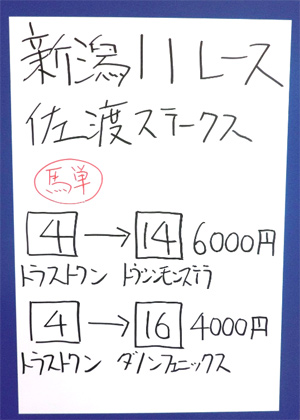 新潟11レース
佐渡ステークス
馬単
4→14 6000円
トラストワン ドゥシモンステラ
4→16 4000円
トラストワン ダノンフェニックス